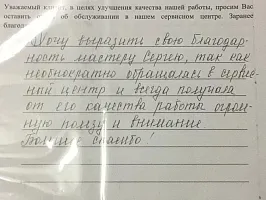 Уважаемый клиент, в целях улучшения качества нашей работы, просим Вас
оставить об обслуживании в нашем сервисном центре. Заранее
Хочу выразить свою благодар-
ность мастеру Сергею, так как
неоднократно обращалась в сервис-
ный центр и всегда получала
от его качества работа огром-
ную пользу и внимание.
Большое спасибо!